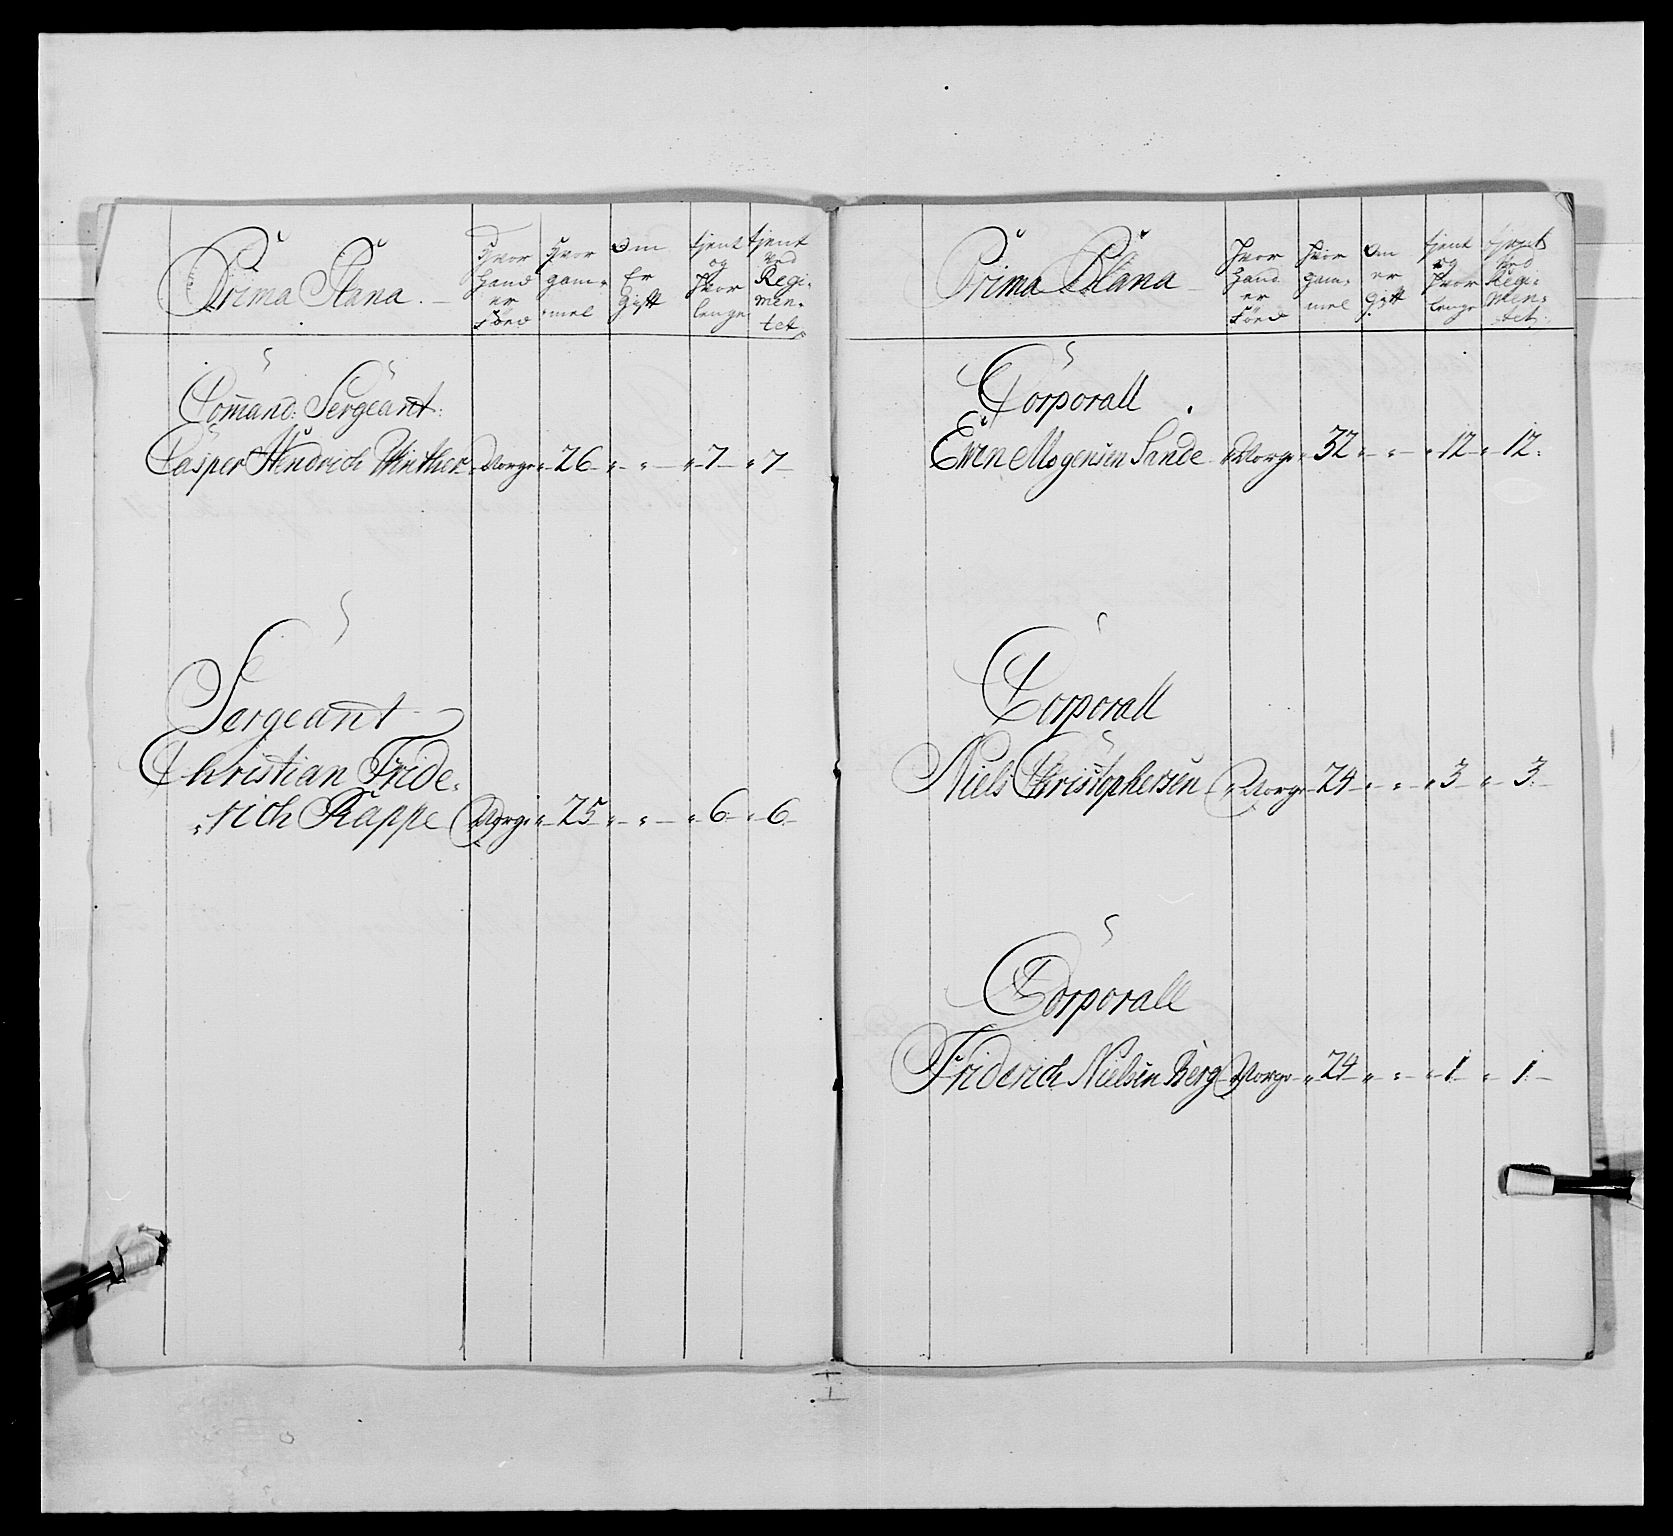 Prima Plana.
Hvor hand er Föed
Hvor gam-mel
Om Er Gift
tjent og Hvor lenge
tjent Ved Regi-men-tet
Comand: Sergeant:
Casper Hendrich Winther Norge 26 " " 7 7
Sergeant
Christian Fride-
rich Rappe Norge 25 " " 6 6
Prima Plana
Hvor Hand er Föed
Hvor gam-mel
Om er Gift
tjent og Hvor lenge
tjent Ved Regi-men-tet.
Corporall
Even Mogensen Sande Norge 32 " " 12 12.
Corporall
Niels Christophersen Norge 24 " " 3 3.
Corporall
Friderich Nielsen Berg Norge 24 " " 1 1